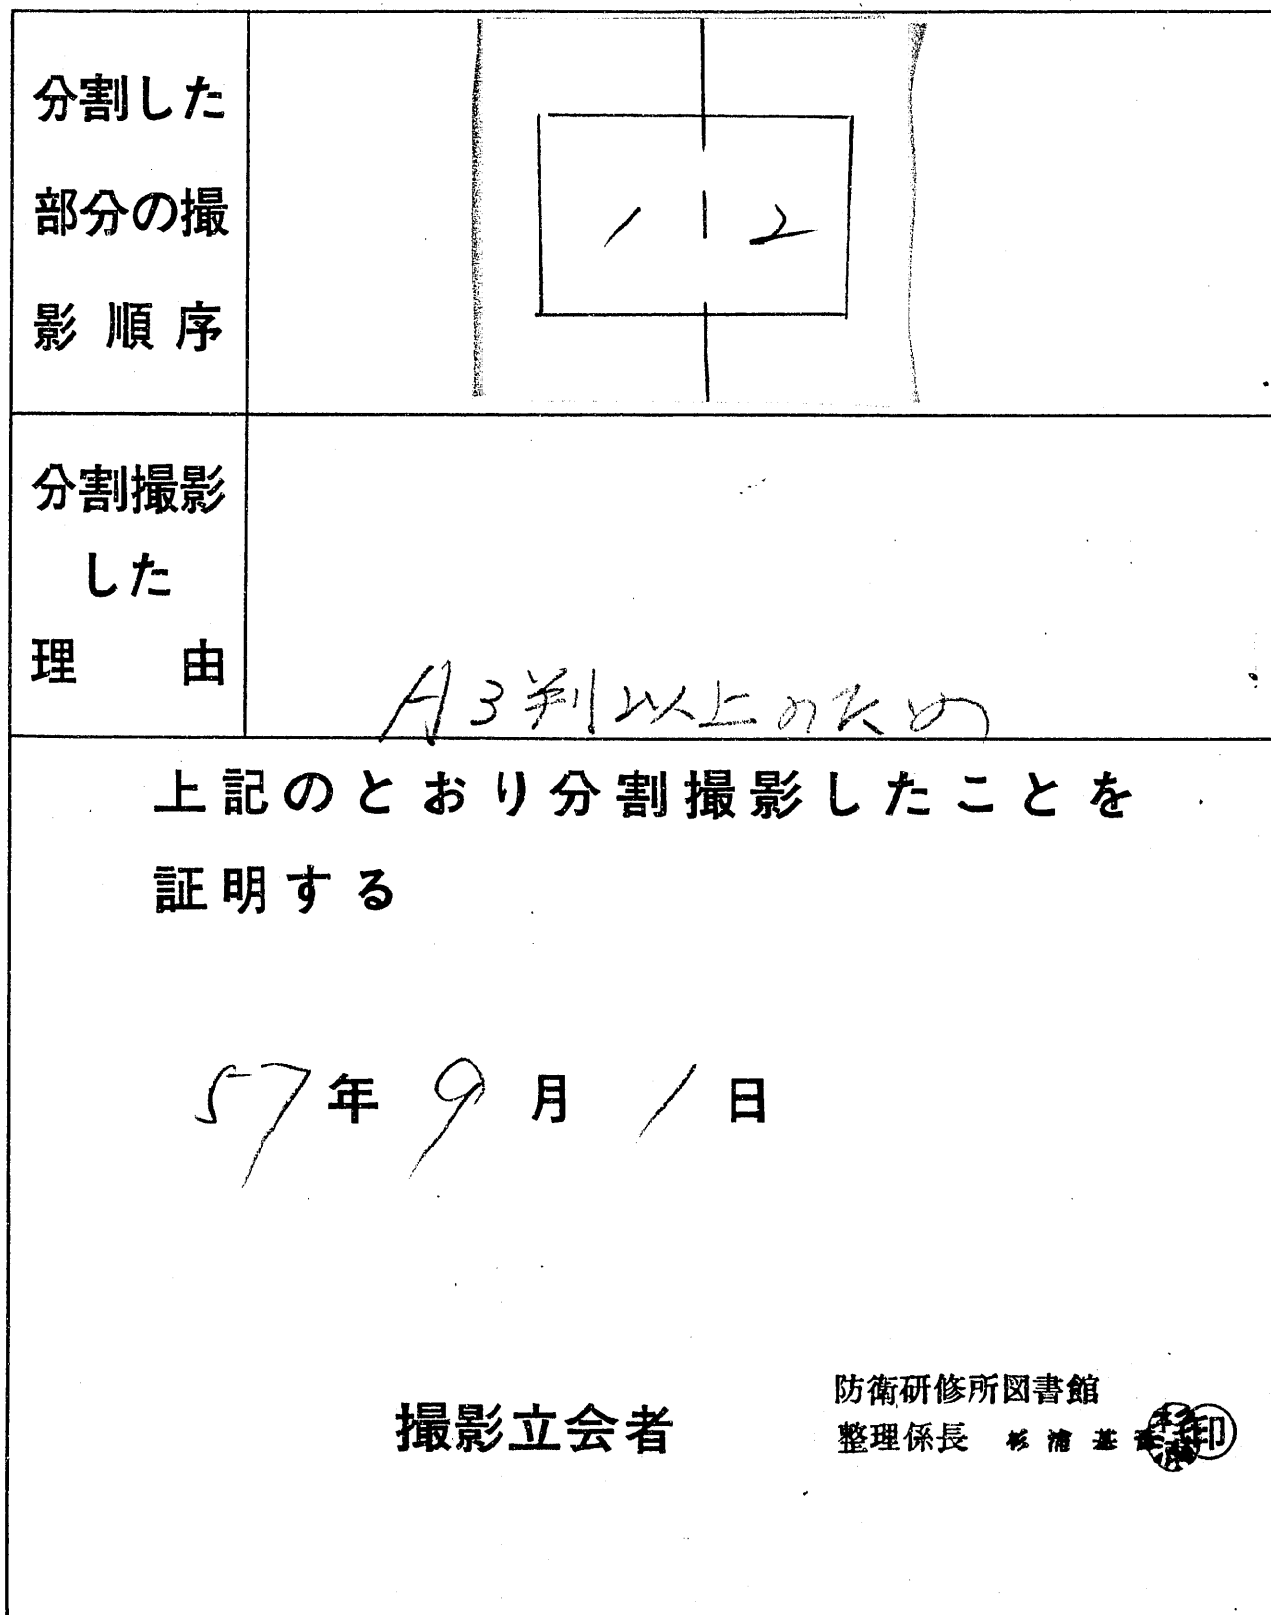 分割した
部分の撮
影順序
1 2
分割撮影
した
理由
A3判以上のため
上記のとおり分割撮影したことを
証明する
57年9月1日
撮影立会者
防衛研修所図書館
整理係長 杉浦 印